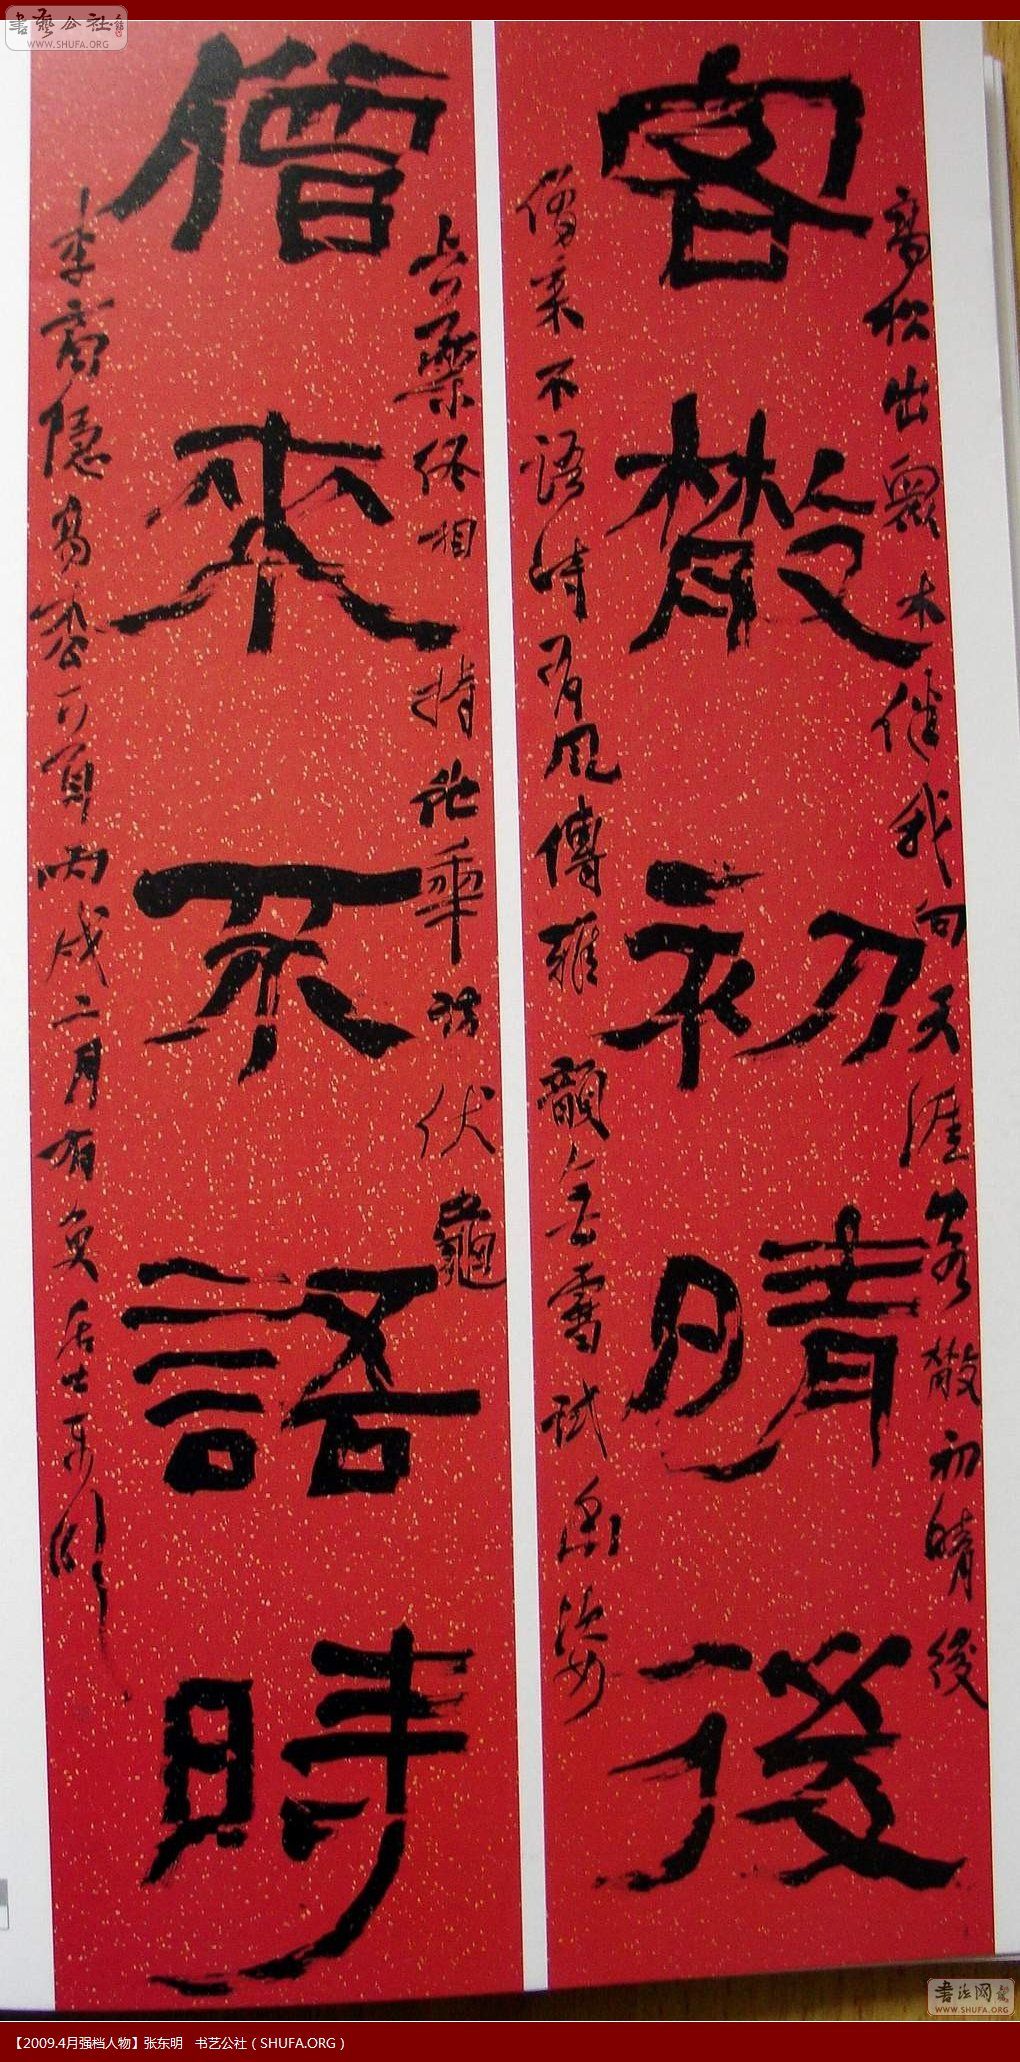 書藝公社
WWW.SHUFA.ORG
客散初晴後
高松出眾木伴我向天涯客散初晴後
僧來不語時有風傳雅韻無雪試幽姿
僧來不語時
上藥終相待他年訪伏龜
李商隱高松一首丙戌二月有魚居士東明
書法网
WWW.SHUFA.ORG
【2009.4月强档人物】张东明 书艺公社（SHUFA.ORG）